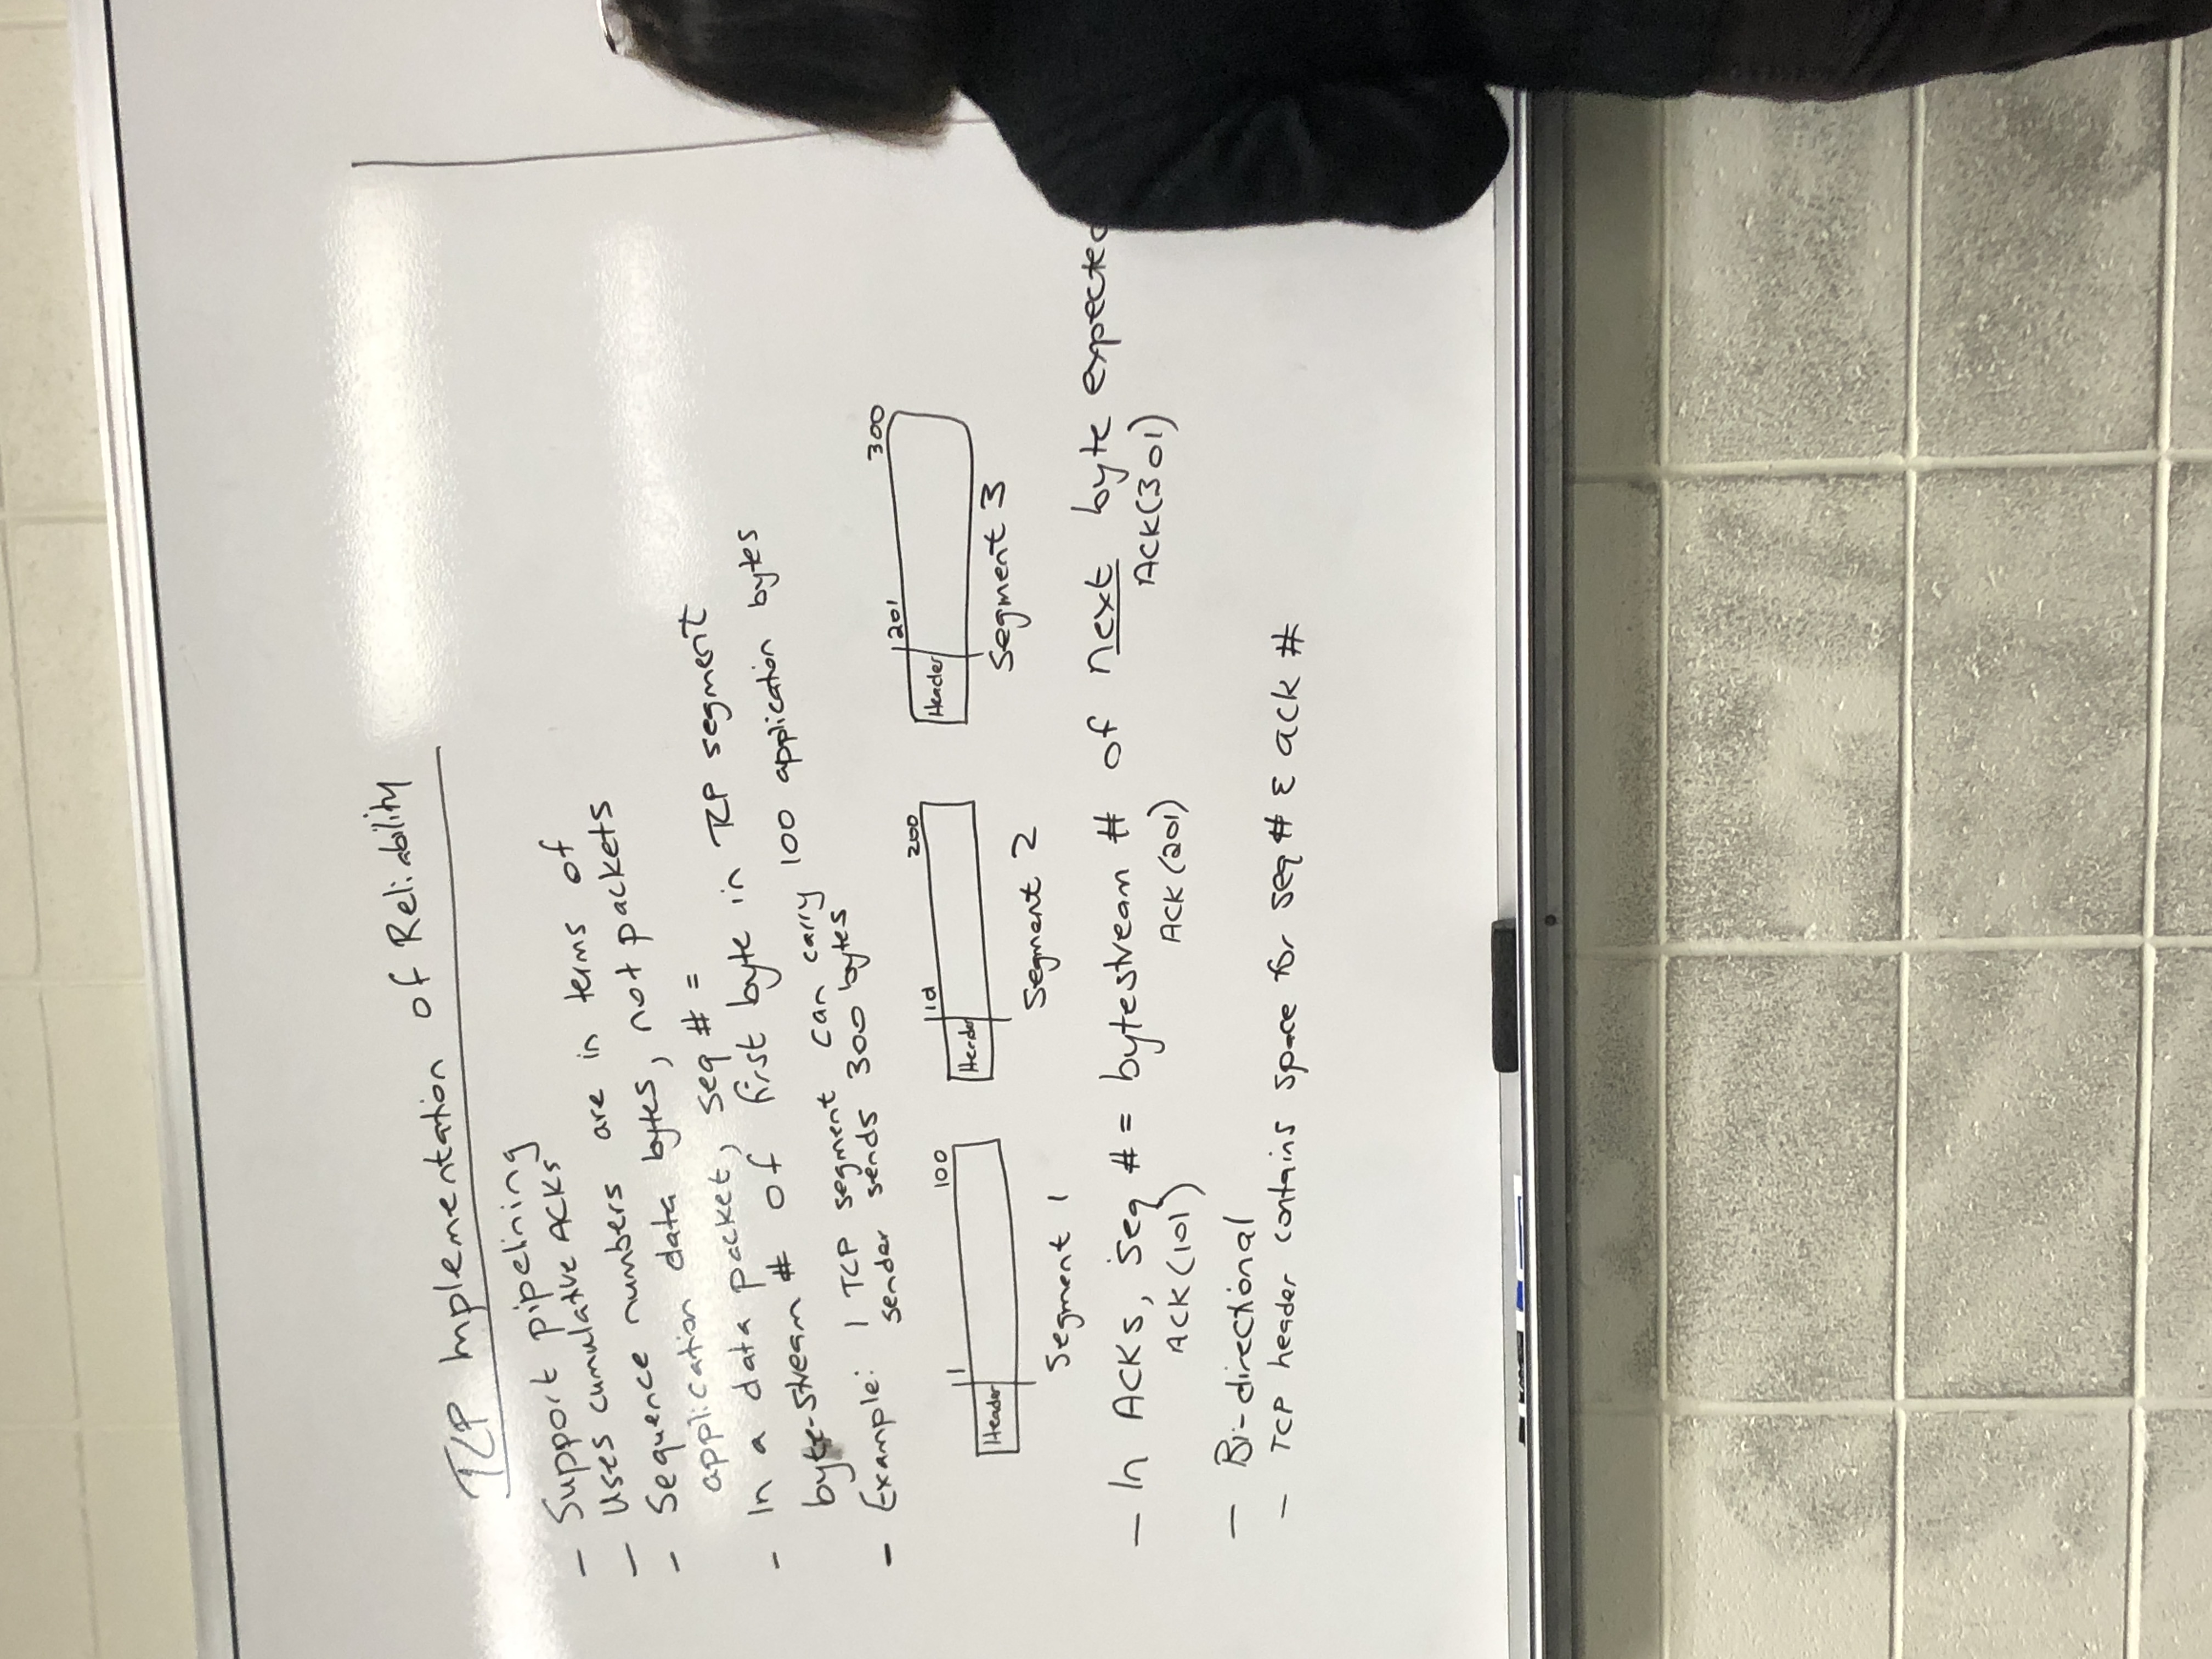 TCP Implementation of Reliability
- Support pipelining
- Uses cumulative ACKs
- Sequence numbers are in terms of
application data bytes, not packets
- In a data packet, seq # =
byte-stream # of first byte in TCP segment
- Example: 1 TCP segment can carry 100 application bytes
sender sends 300 bytes
1 100 101 200 201 300
Header Header Header
Segment 1 Segment 2 Segment 3
- In ACKs, seq # = bytestream # of next byte expected
ACK(101) ACK(201) ACK(301)
- Bi-directional
- TCP header contains space for seq # & ack #